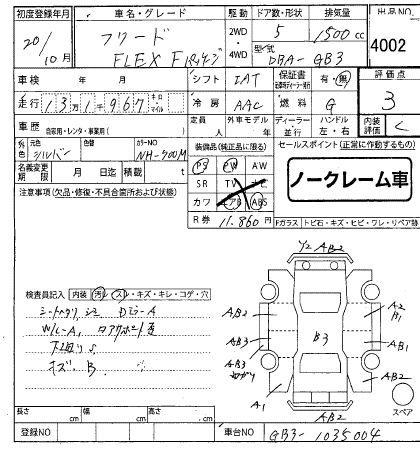 初度登録年月 車名・グレード 駆動 ドア数・形状 排気量 出品NO
20/10月 フリード 2WD・4WD 5 1500cc 4002
FLEX Fパッケージ 型式 DBA-GB3
車検 年 月 シフト IAT 保証書 有・無 評価点
走行 13万1千967 キロ・マイル 冷房 AAC 燃料 G 3
車歴 自家用・レンタ・事業用( ) 定員 人 外車モデル 年 ディーラー・並行 ハンドル 左・右 内装評価 C
外色 元色 シルバー 色替 カラーNO NH-700M 装備品(純正品に限る) セールスポイント(正常に作動するもの)
名義変更期限 月 日迄 積載量 t PS PW AW
注意事項(欠品・修復・不具合箇所および状態) SR TV ナビ ノークレーム車
カワ エアB ABS
R券 11,860円 Fガラス トビ石・キズ・ヒビ・ワレ・リペア跡
Y2 AB2
検査員記入 内装 汚れ・スレ・キズ・キレ・コゲ・穴
シートヘタリ シミ Dミラー A
W/L-A
下廻り S
キズ B
AB2 A2
AB3 B3 AB1
AB3
A1 AB2 AB2
スペア
長さ cm 幅 cm 高さ cm
登録NO 車台NO GB3-1035004